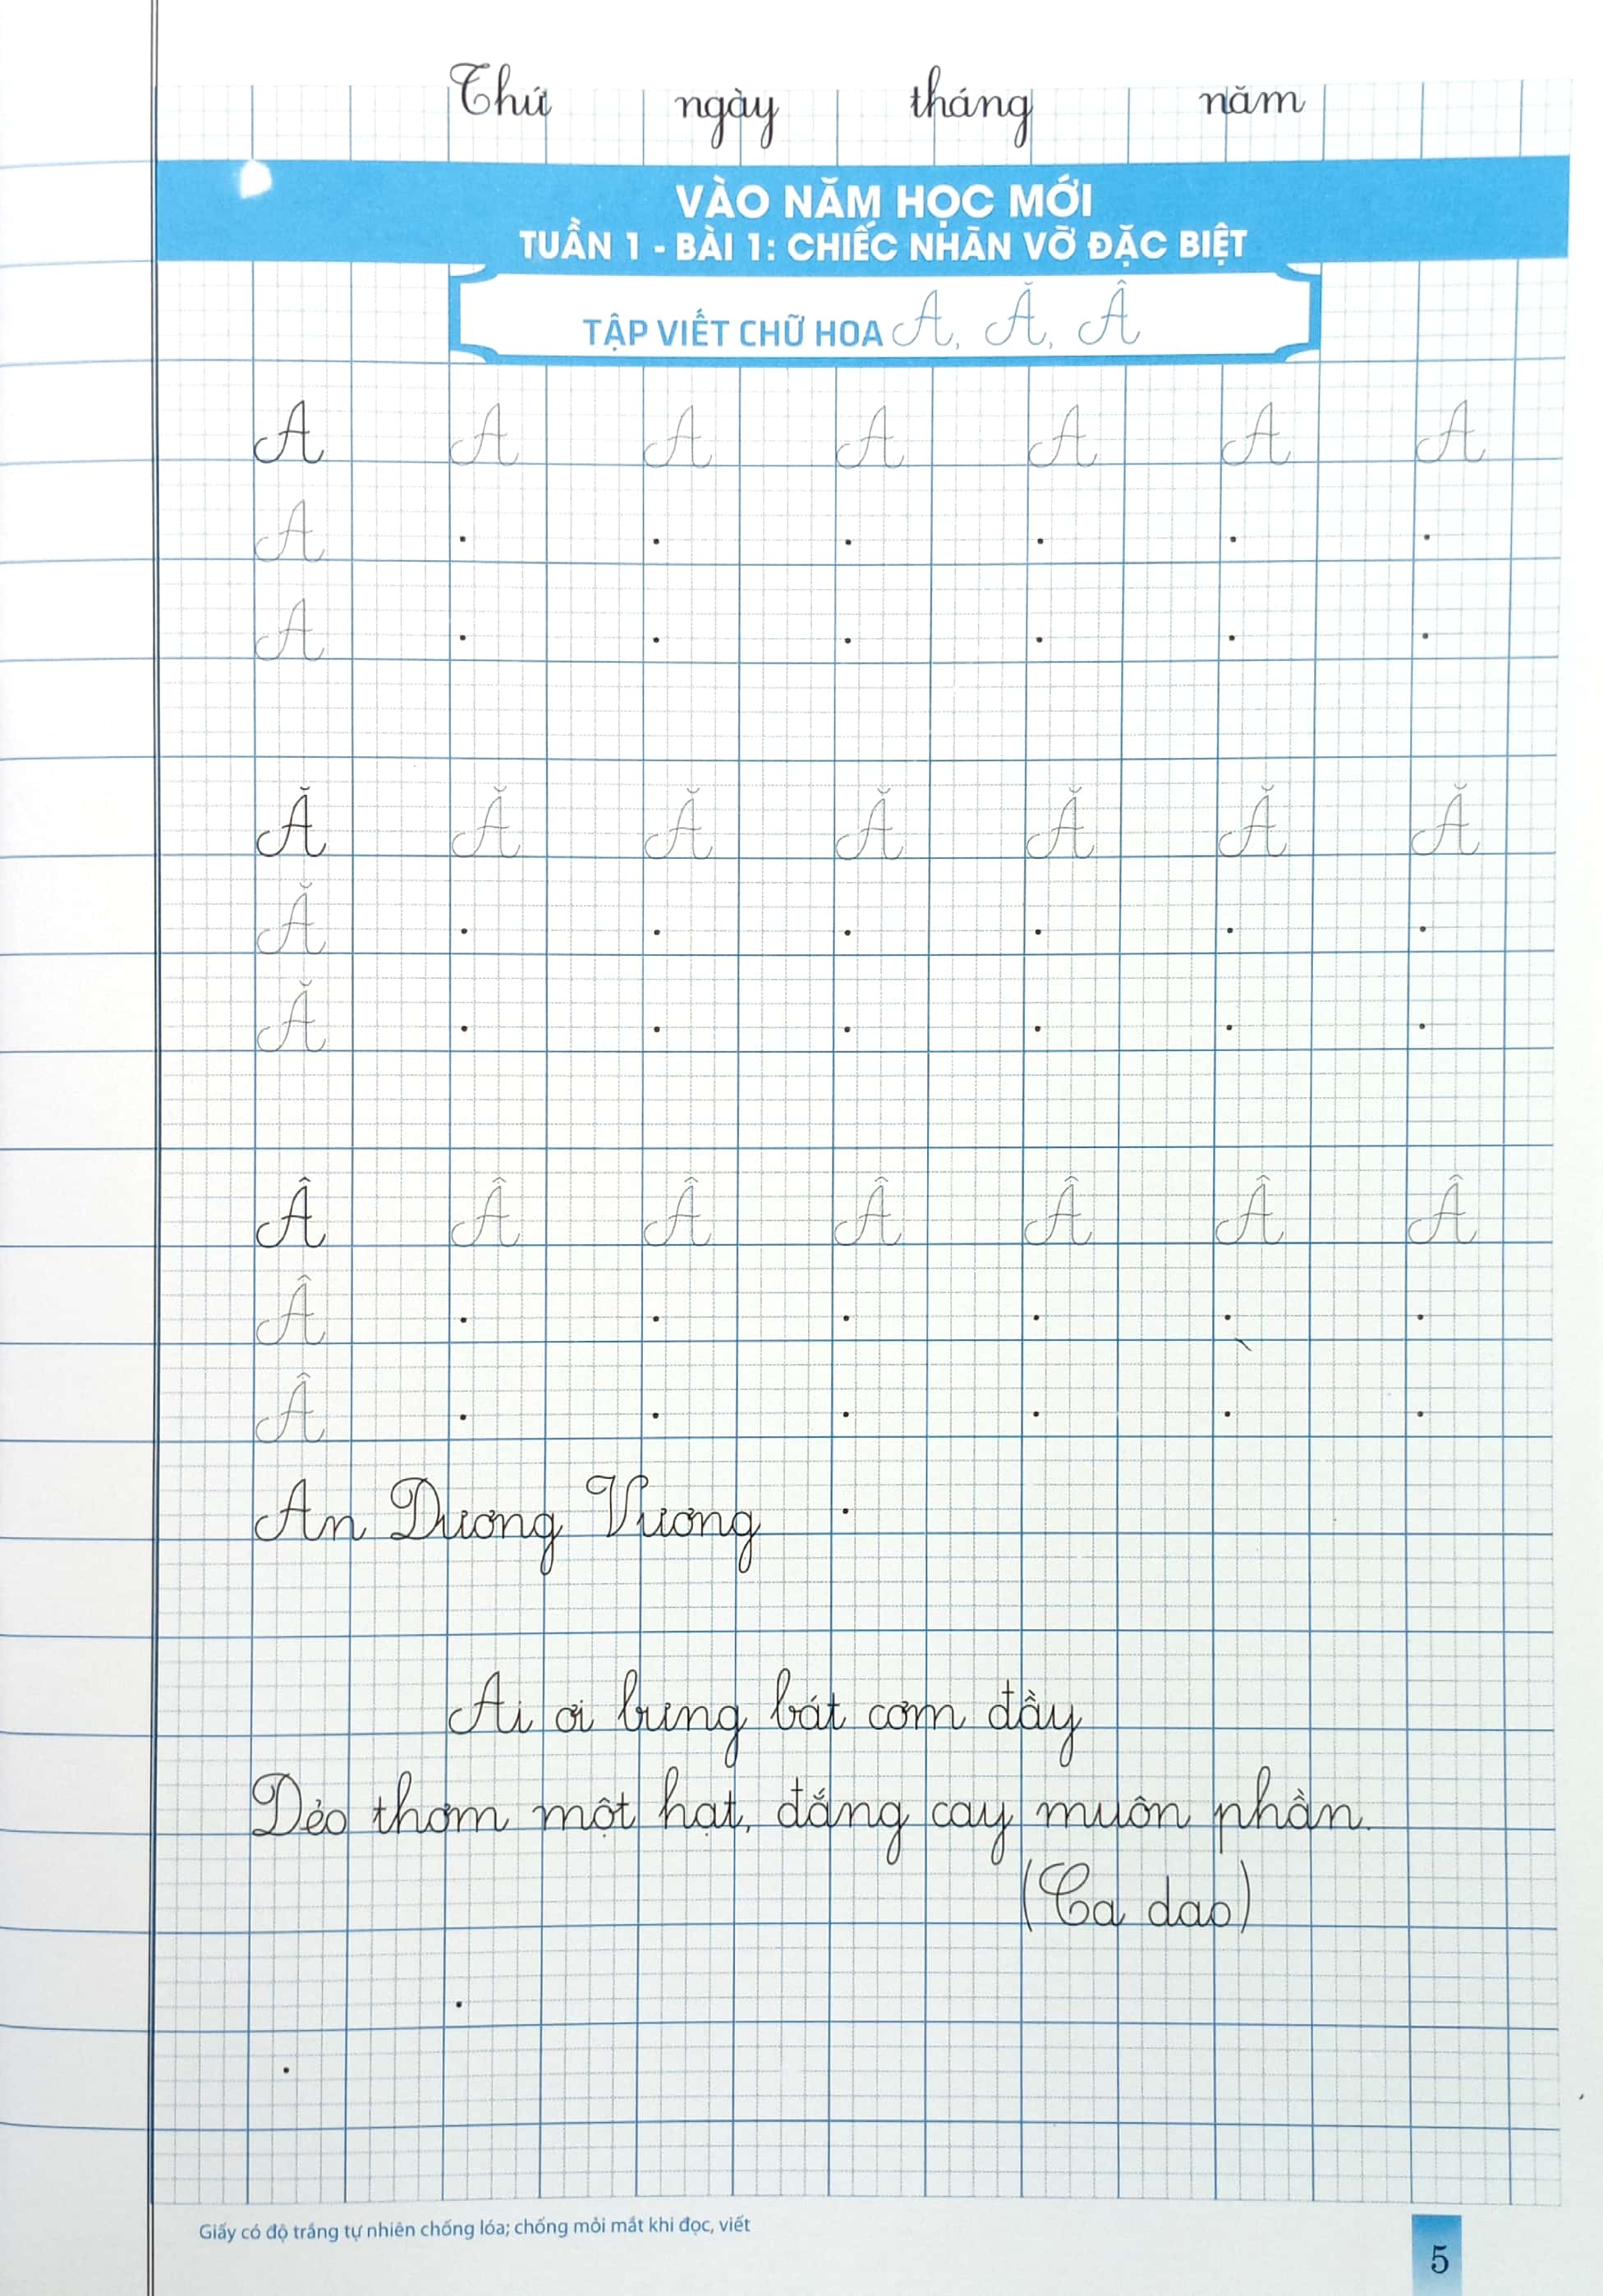 Thứ ngày tháng năm
VÀO NĂM HỌC MỚI
TUẦN 1 - BÀI 1: CHIẾC NHÃN VỞ ĐẶC BIỆT
TẬP VIẾT CHỮ HOA A, Ă, Â
A A A A A A A
A . . . . . .
A . . . . . .
Ă Ă Ă Ă Ă Ă Ă
Ă . . . . . .
Ă . . . . . .
Â Â Â Â Â Â Â
Â . . . . . .
Â . . . . . .
An Dương Vương .
Ai ơi bưng bát cơm đầy
Dẻo thơm một hạt, đắng cay muôn phần.
(Ca dao)
.
.
Giấy có độ trắng tự nhiên chống lóa; chống mỏi mắt khi đọc, viết
5